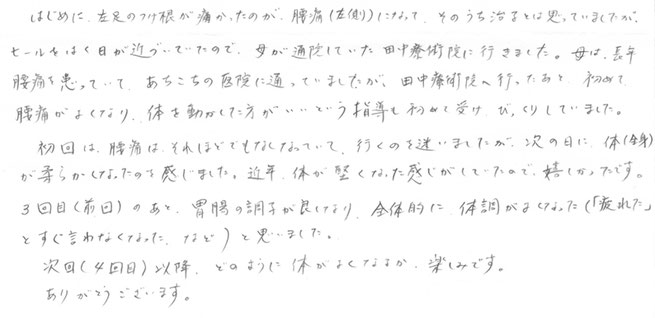 はじめに、左足のつけ根が痛かったのが、腰痛(左側)になって、そのうち治るとは思っていましたが、
ヒールをはく日が近づいていたので、母が通院していた田中療術院に行きました。母は、長年
腰痛を患っていて、あちこちの医院に通っていましたが、田中療術院へ行ったあと、初めて
腰痛がよくなり、体を動かした方がいいという指導も初めて受け、びっくりしていました。
初回は、腰痛は、それほどでもなくなっていて、行くのを迷いましたが、次の日に、体(全身)
が柔らかくなったのを感じました。近年、体が堅くなった感じがしていたので、嬉しかったです。
3回目(前回)のあと、胃腸の調子が良くなり、全体的に、体調がよくなった(「疲れた」
とすぐ言わなくなった、など)と思いました。
次回(4回目)以降、どのように体がよくなるか、楽しみです。
ありがとうございます。